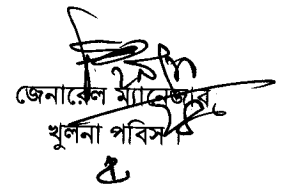 জেনারেল ম্যানেজার
খুলনা পবিস